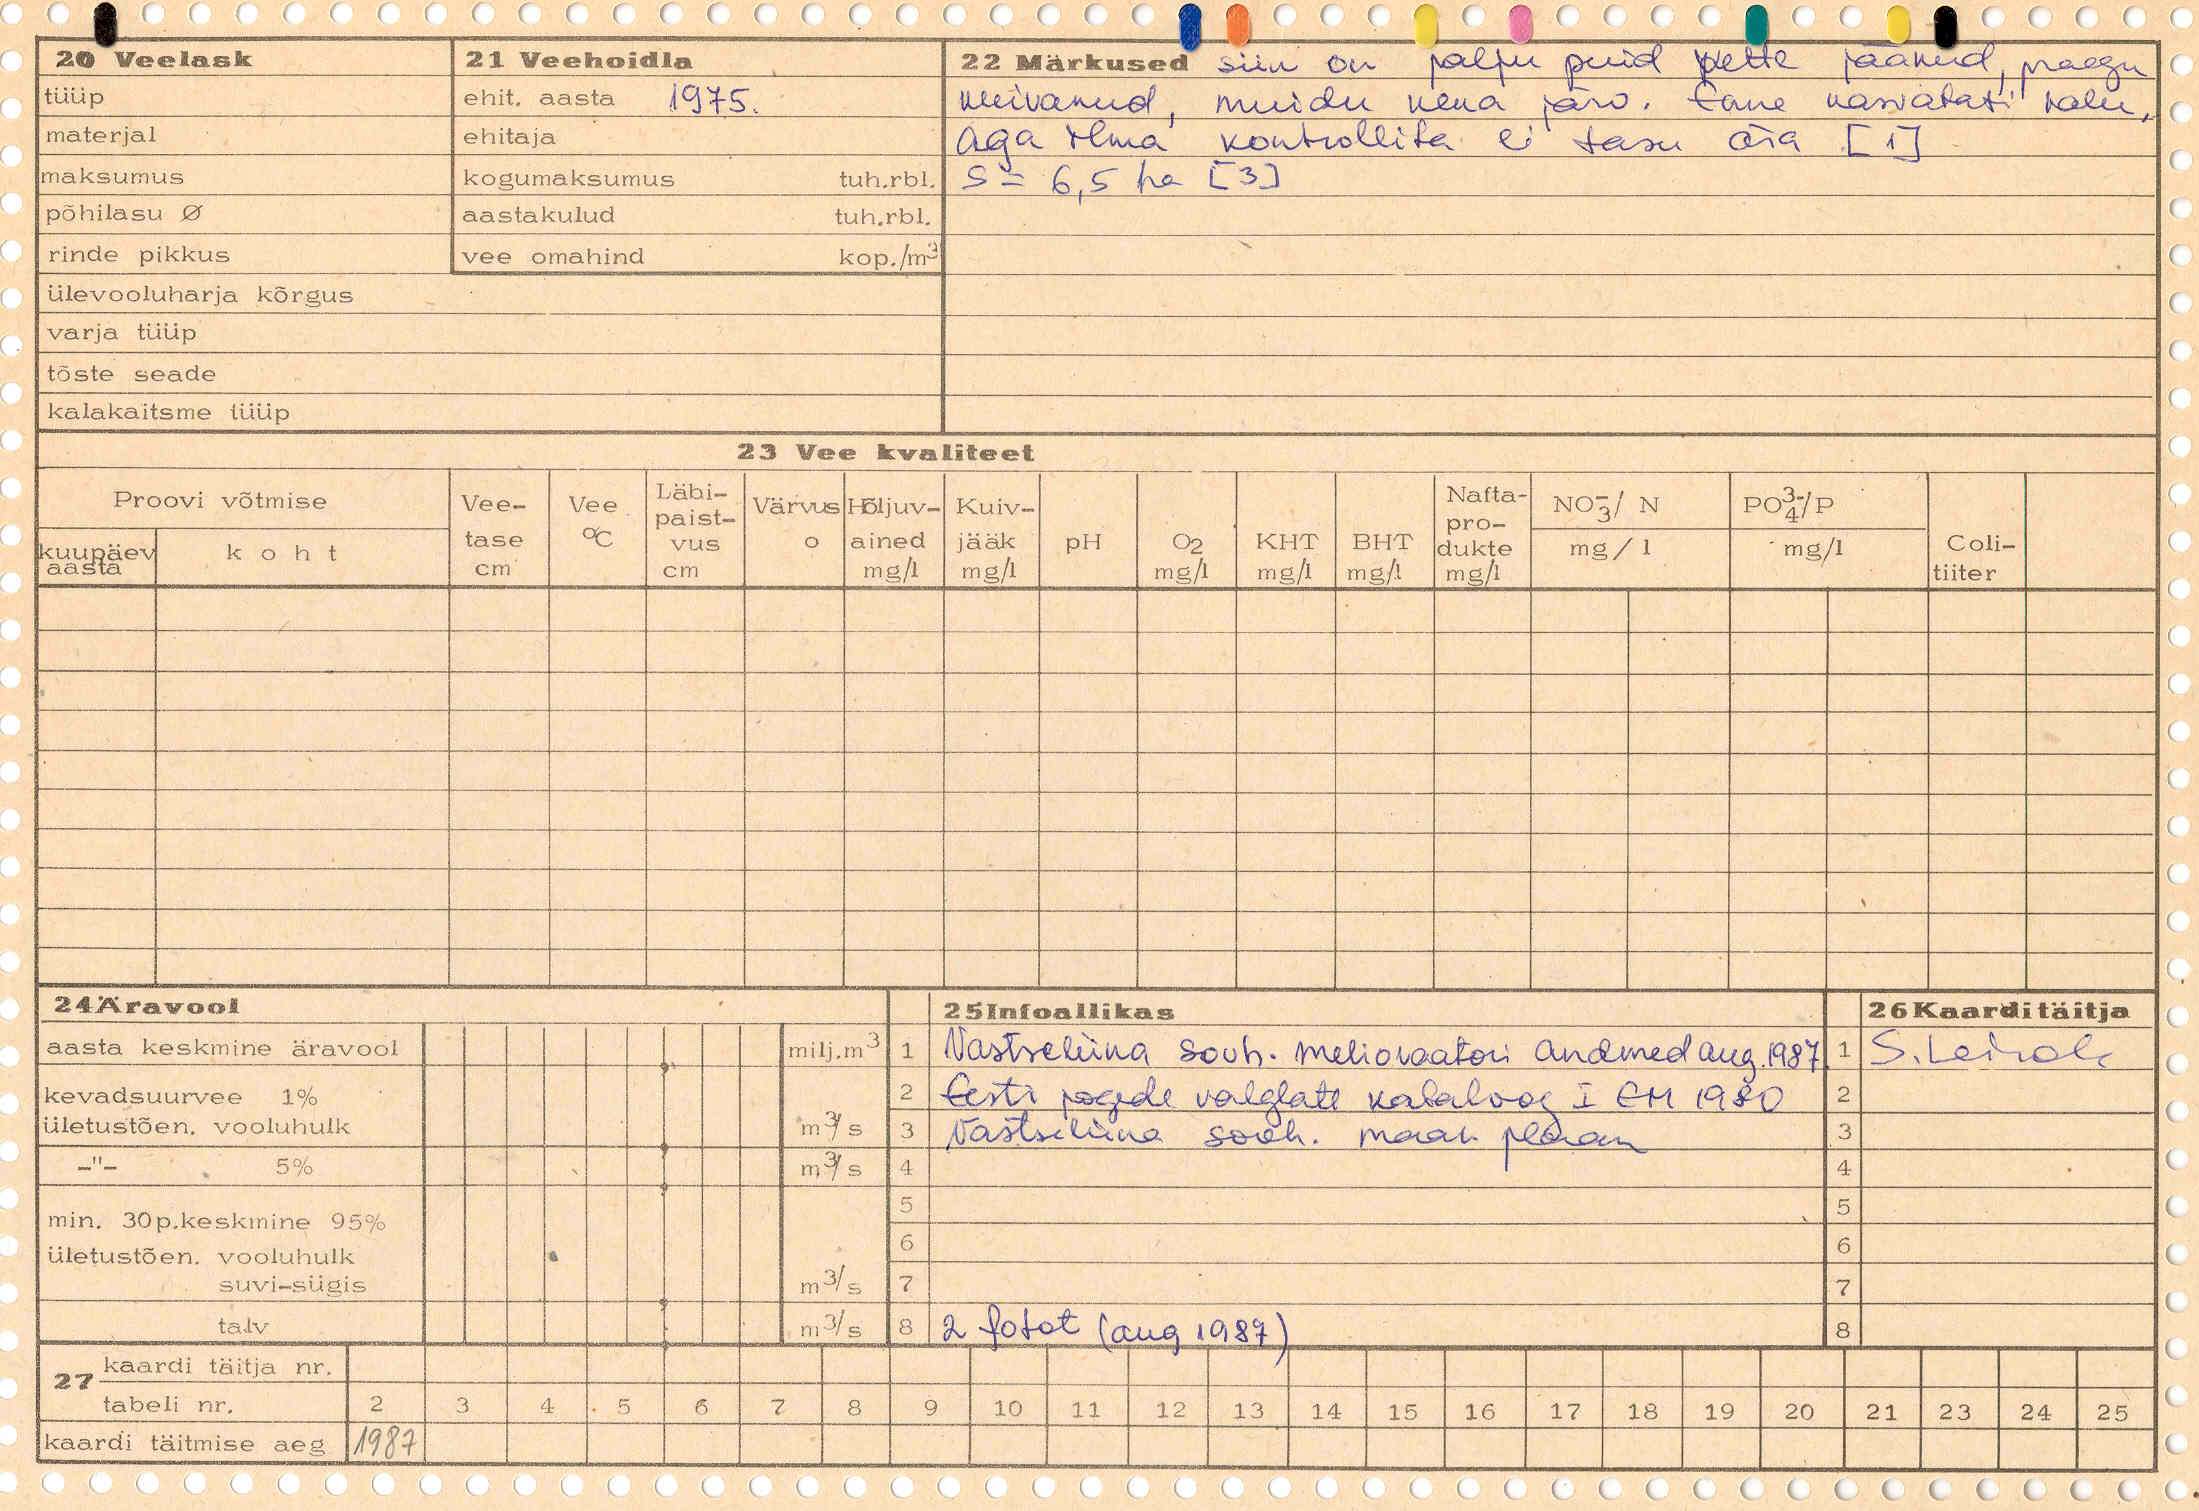 20 Veelask
tüüp
materjal
maksumus
põhilasu Ø
rinde pikkus
ülevooluharja kõrgus
varja tüüp
tõste seade
kalakaitsme tüüp
21 Veehoidla
ehit. aasta 1975.
ehitaja
kogumaksumus tuh.rbl.
aastakulud tuh.rbl.
vee omahind kop./m³
22 Märkused siin on palju puid vette jäänud, praegu
kuivanud, muidu kena järv. Enne kasvatati kalu,
aga ilma kontrollita ei tasu ära [1]
S = 6,5 ha [3]
23 Vee kvaliteet
Proovi võtmise
kuupäev aasta
koht
Vee-tase cm
Vee °C
Läbi-paist-vus cm
Värvus o
Hõljuv-ained mg/l
Kuiv-jääk mg/l
pH
O2 mg/l
KHT mg/l
BHT mg/l
Nafta-pro-dukte mg/l
NO3-/ N mg/l
PO4 3-/P mg/l
Coli-tiiter
24 Äravool
aasta keskmine äravool milj.m³
kevadsuurvee 1%
ületustõen. vooluhulk m³/s
-"- 5% m³/s
min. 30p.keskmine 95%
ületustõen. vooluhulk
suvi-sügis m³/s
talv m³/s
25 Infoallikas
1 Vastseliina sovh. melioraatori andmed aug. 1987
2 Eesti jõgede valglate kataloog I EM 1980
3 Vastseliina sovh. maak plaan
4
5
6
7
8 2 fotot (aug 1987)
26 Kaardi täitja
1
2
3
4
5
6
7
8
27 kaardi täitja nr.
tabeli nr. 2 3 4 5 6 7 8 9 10 11 12 13 14 15 16 17 18 19 20 21 23 24 25
kaardi täitmise aeg 1987